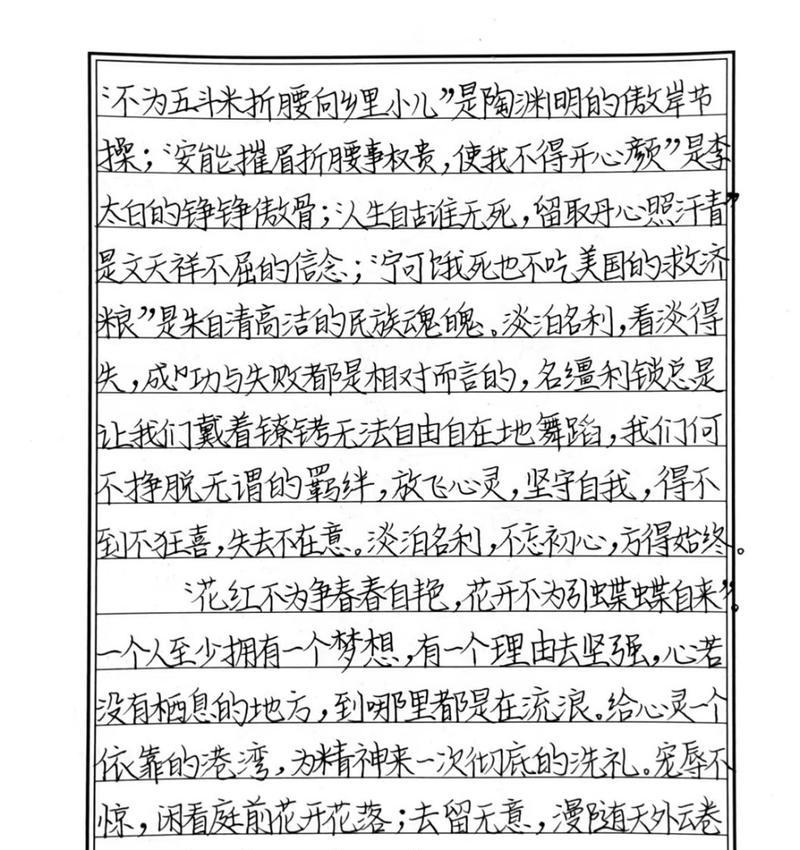 “不为五斗米折腰向乡里小儿”是陶渊明的傲岸节
操；“安能摧眉折腰事权贵，使我不得开心颜”是李
太白的铮铮傲骨；“人生自古谁无死，留取丹心照汗青”
是文天祥不屈的信念；“宁可饿死也不吃美国的救济
粮”是朱自清高洁的民族魂魄。淡泊名利，看淡得
失，成功与失败都是相对而言的，名缰利锁总是
让我们戴着镣铐无法自由自在地舞蹈，我们何
不挣脱无谓的羁绊，放飞心灵，坚守自我，得不
到不狂喜，失去不在意。淡泊名利，不忘初心，方得始终。
“花红不为争春春自艳，花开不为引蝶蝶自来”。
一个人至少拥有一个梦想，有一个理由去坚强，心若
没有栖息的地方，到哪里都是在流浪。给心灵一个
依靠的港湾，为精神来一次彻底的洗礼。宠辱不
惊，闲看庭前花开花落；去留无意，漫随天外云卷